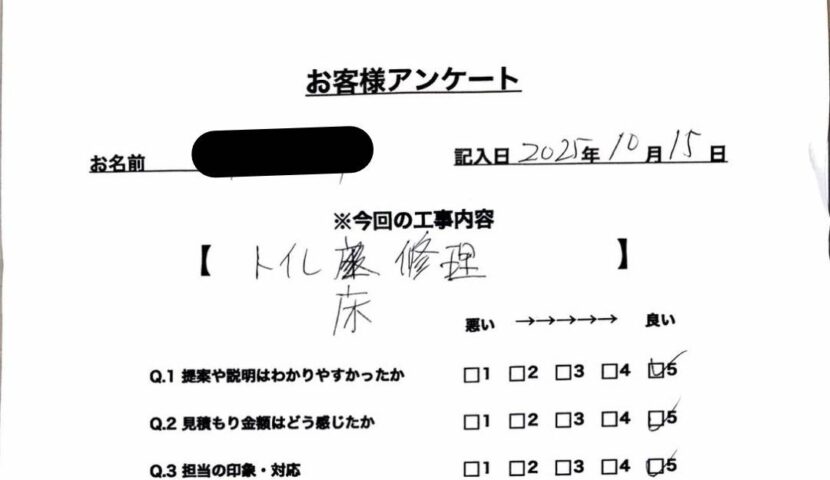 お客様アンケート
お名前 記入日 2025年 10月 15日
※今回の工事内容
【 トイレ 修理 】
床
悪い →→→→→ 良い
Q.1 提案や説明はわかりやすかったか □1 □2 □3 □4 ☑5
Q.2 見積もり金額はどう感じたか □1 □2 □3 □4 ☑5
Q.3 担当の印象・対応 □1 □2 □3 □4 ☑5